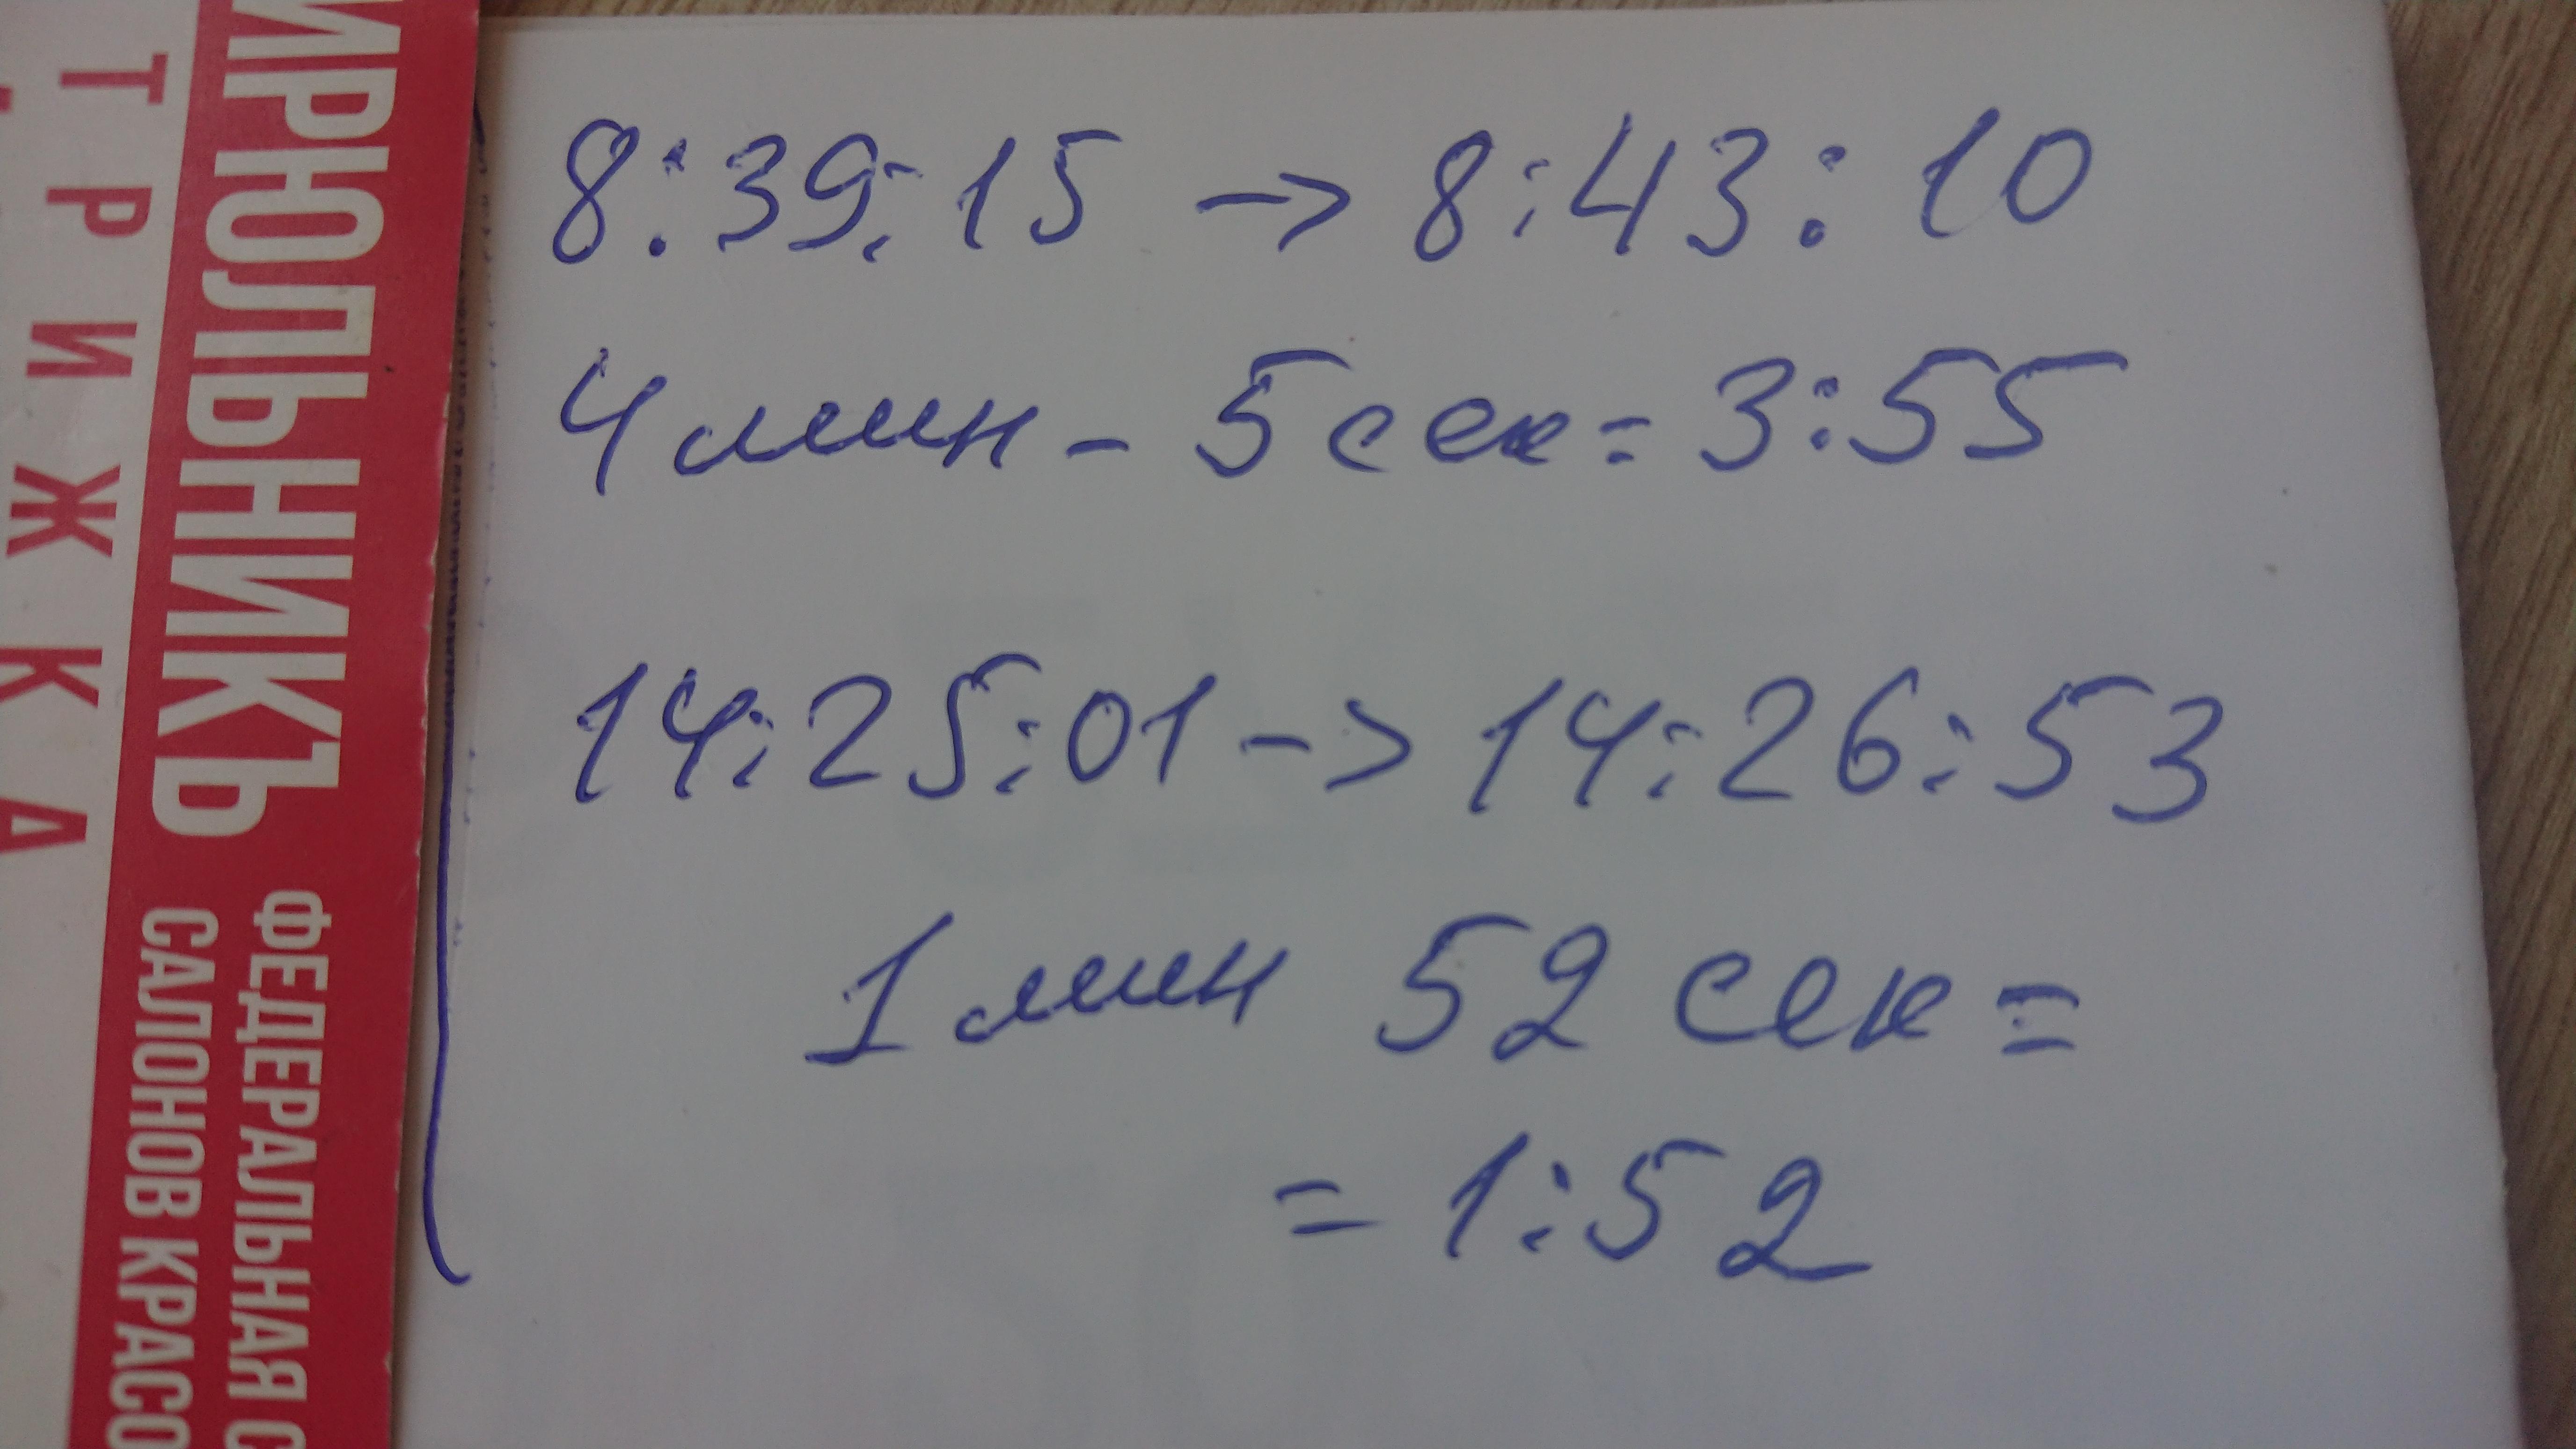 8:39:15 -> 8:43:10
4 мин - 5 сек = 3:55
14:25:01 -> 14:26:53
1 мин 52 сек =
= 1:52
ИРЮЛЬНИКЪ
ТРИЖКА
ФЕДЕРАЛЬНАЯ С
САЛОНОВ КРАСО